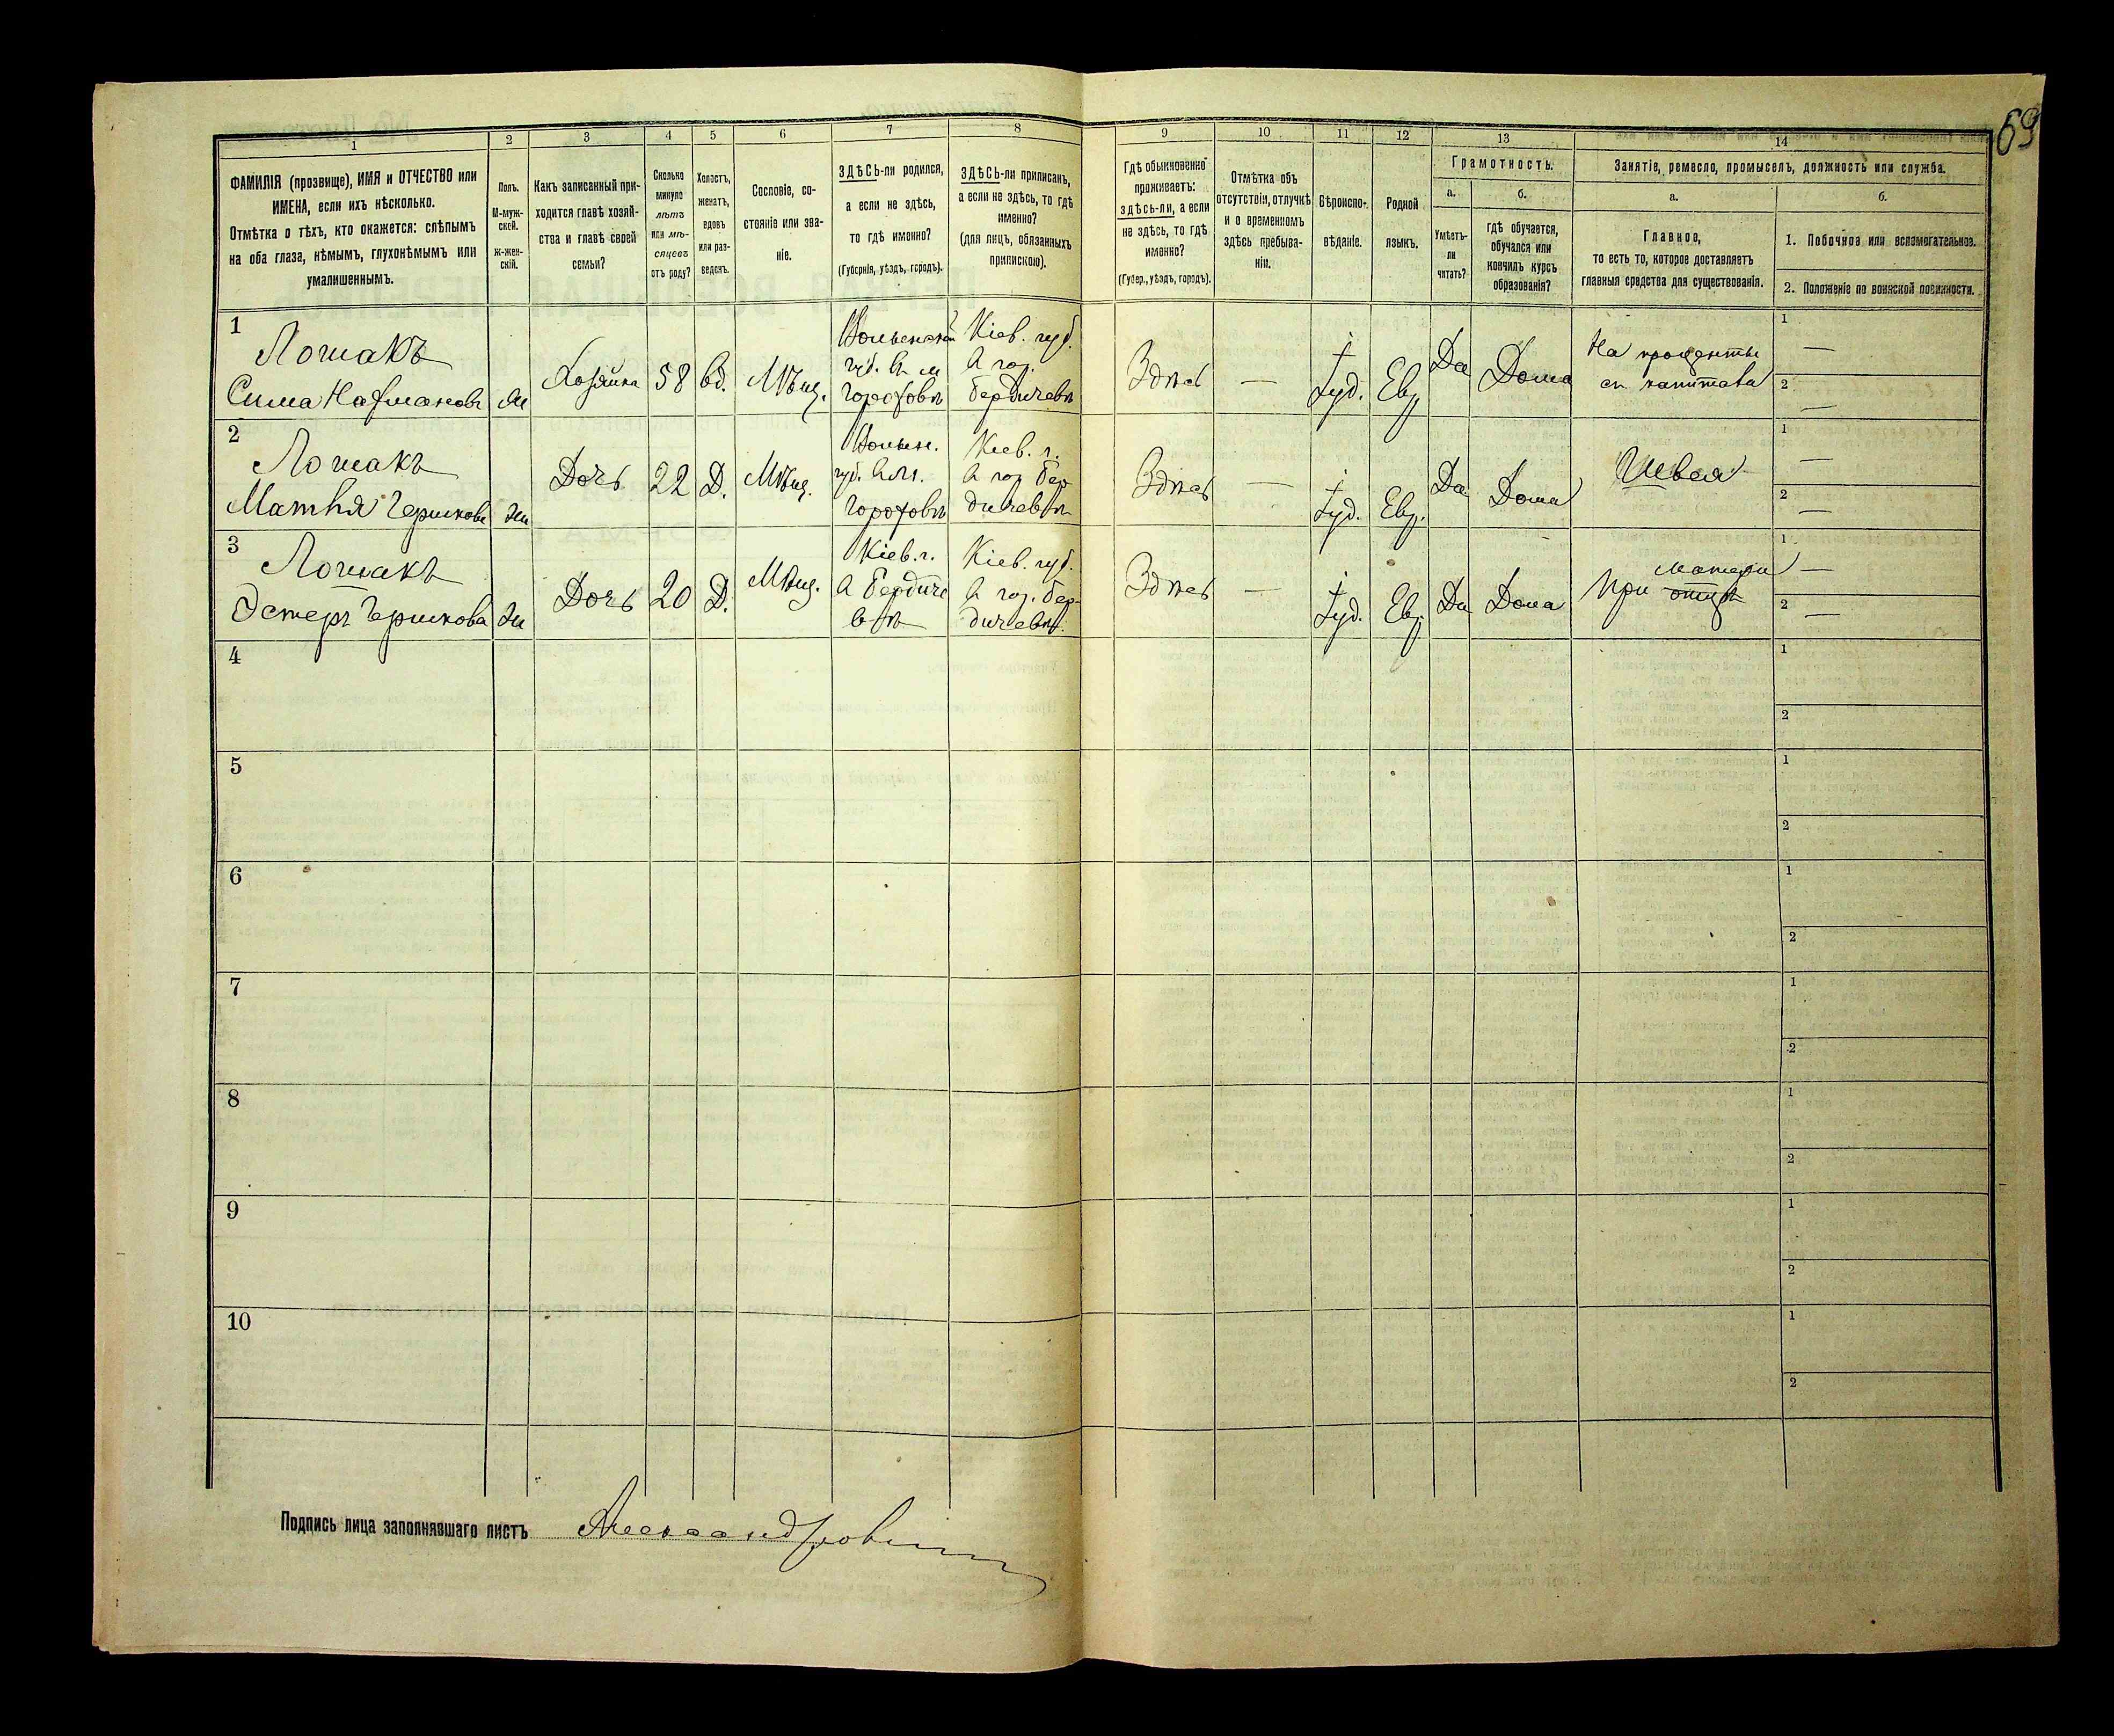 69
1
2
3
4
5
6
7
8
9
10
11
12
13
14
ФАМИЛІЯ (прозвище), ИМЯ и ОТЧЕСТВО или
ИМЕНА, если ихъ нѣсколько.
Отмѣтка о тѣхъ, кто окажется: слѣпымъ
на оба глаза, нѣмымъ, глухонѣмымъ или
умалишеннымъ.
Полъ.
М-муж-
ской.
ж-жен-
скій.
Какъ записанный при-
ходится главѣ хозяй-
ства и главѣ своей
семьи?
Сколько
минуло
лѣтъ
или мѣ-
сяцевъ
отъ роду?
Холостъ,
женатъ,
вдовъ
или раз-
веденъ.
Сословіе, со-
стояніе или зва-
ніе.
ЗДѢСЬ-ли родился,
а если не здѣсь,
то гдѣ именно?
(Губернія, уѣздъ, городъ).
ЗДѢСЬ-ли приписанъ,
а если не здѣсь, то гдѣ
именно?
(для лицъ, обязанныхъ
припискою).
Гдѣ обыкновенно
проживаетъ:
здѣсь-ли, а если
не здѣсь, то гдѣ
именно?
(Губер., уѣздъ, городъ).
Отмѣтка объ
отсутствіи, отлучкѣ
и о временномъ
здѣсь пребыва-
ніи.
Вѣроиспо-
вѣданіе.
Родной
языкъ.
Грамотность.
а.
Умѣетъ-
ли
читать?
б.
гдѣ обучается,
обучался или
кончилъ курсъ
образованія?
Занятіе, ремесло, промыселъ, должность или служба.
а.
Главное,
то есть то, которое доставляетъ
главныя средства для существованія.
б.
1. Побочное или вспомогательное.
2. Положеніе по воинской повинности.
1
Лошакъ
Сима Нафманова
Хозяйка
58
вд.
Мѣщ.
губ. въ м
Горохов
Кіев. губ.
въ гор.
Бердичевѣ
Здѣсь
—
Іуд.
Евр.
Да
Дома
На проценты
съ капитала
1
—
2
—
2
Лошакъ
Матля Гершкова
Жи
Дочь
22
Д.
Мѣщ.
Волын.
губ. въ м.
Горохов
Кіев. г.
въ гор. Бер
дичевѣ
Здѣсь
—
Іуд.
Евр.
Да
Дома
Швея
1
—
2
—
3
Лошакъ
Эстеръ Гершкова
Жи
Дочь
20
Д.
Мѣщ.
Кіев. г.
въ Бердиче
вѣ
Кіев. губ.
въ гор. Бер-
дичевѣ.
Здѣсь
—
Іуд.
Евр.
Да
Дома
матери
При отцѣ
1
—
2
—
4
1
2
5
1
2
6
1
2
7
1
2
8
1
2
9
1
2
10
1
2
Подпись лица заполнявшаго листъ